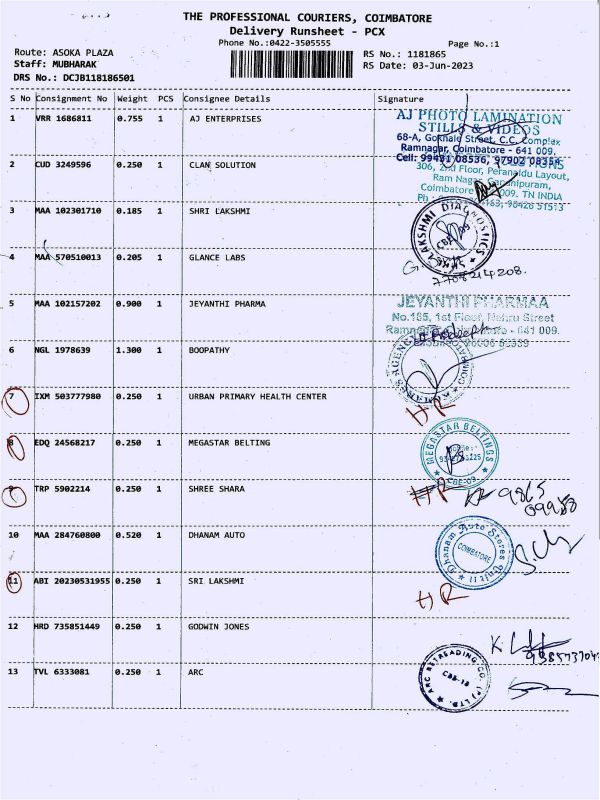 THE PROFESSIONAL COURIERS, COIMBATORE
Delivery Runsheet - PCX
Phone No.:0422-3505555
Page No.:1
Route: ASOKA PLAZA
RS No.: 1181865
Staff: MUBHARAK
RS Date: 03-Jun-2023
DRS No.: DCJB118186501
S No Consignment No Weight PCS Consignee Details Signature
1 VRR 1686811 0.755 1 AJ ENTERPRISES
AJ PHOTO LAMINATION
STILLS & VIDEOS
68-A, Gokhale Street, C.C. Complex
Ramnagar, Coimbatore - 641 009.
Cell: 99431 08536, 97902 08354
2 CUD 3249596 0.250 1 CLAN SOLUTION
306, 2nd Floor, Peranaidu Layout,
Ram Nagar,
Coimbatore 009. TN INDIA
3 MAA 102301710 0.185 1 SHRI LAKSHMI
LAKSHMI DIAGNOSTICS
CBE-09
4 MAA 570510013 0.205 1 GLANCE LABS
7708214208.
5 MAA 102157202 0.900 1 JEYANTHI PHARMA
JEYANTHI PHARMAA
No.185, 1st Floor, Nehru Street
641 009.
6 NGL 1978639 1.300 1 BOOPATHY
7 IXM 503777980 0.250 1 URBAN PRIMARY HEALTH CENTER
HR
8 EDQ 24568217 0.250 1 MEGASTAR BELTING
MEGASTAR BELTINGS
CBE-09
9 TRP 5902214 0.250 1 SHREE SHARA
HR
9865
09988
10 MAA 284760800 0.520 1 DHANAM AUTO
Dhanam Auto Stores
COIMBATORE
11 ABI 20230531955 0.250 1 SRI LAKSHMI
HR
12 HRD 735851449 0.250 1 GODWIN JONES
13 TVL 6333081 0.250 1 ARC
ARC RETREADING CO. (P) LTD.
CBE-18